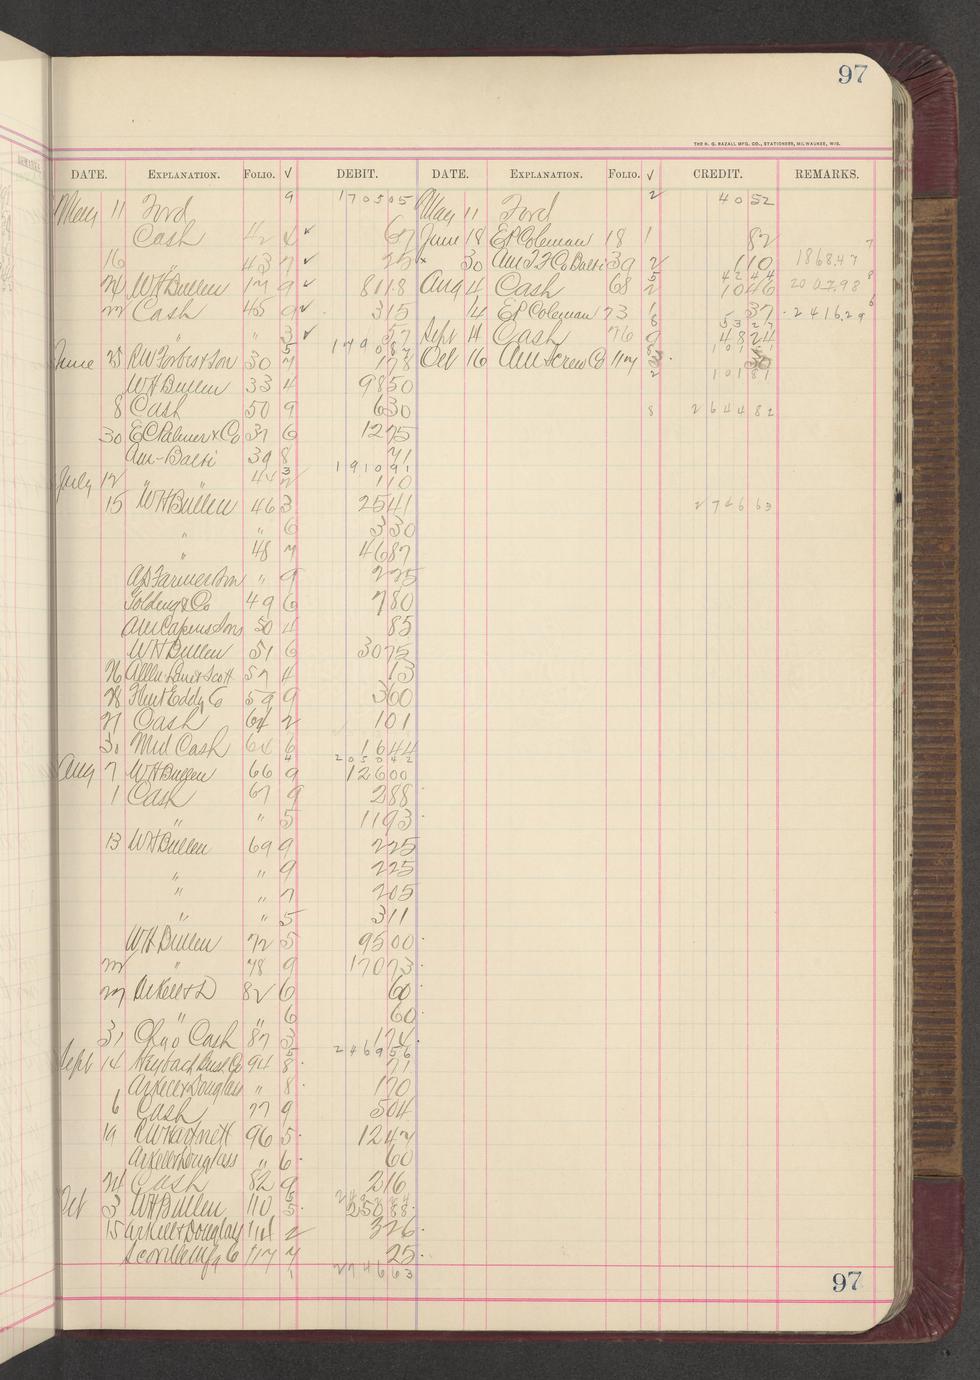 97
THE H. G. RAZALL MFG. CO., STATIONERS, MILWAUKEE, WIS.
DATE. EXPLANATION. FOLIO. √ DEBIT. DATE. EXPLANATION. FOLIO. √ CREDIT. REMARKS.
May 11 Ford 9 170505 May 11 Ford 2 4052
Cash 42 4 ✓ 67 June 18 EP Coleman 18 1 82
16 " 43 7 ✓ 25 30 Am T F Co Balti 39 2 110 186847 7
4244 5
24 WH Bullen 17 9 ✓ 8118 Aug 4 Cash 68 2 1046 200798 8
Cash 45 9 ✓ 315 14 EP Coleman 73 1 37 241629 6
" 3 ✓ 57 Sept 14 Cash 76 9 4824
June 25 RW Forbes & Son 30 7 178 Oct 16 Am Screw Co 117
WH Bullen 33 4 9850 2 10181
8 Cash 50 9 630 8 264482
30 EC Palmer & Co 37 6 1275
Am - Balti 39 8 71
191091 3
July 12 " " 44 2 110
15 WH Bullen 46 3 2541 274663
" 6 330
" 48 7 4687
AD Farmer & Son " 9 225
Golding & Co 49 6 780
50 4 85
WH Bullen 51 6 3075
26 57 4 13
28 Flint Eddy Co 59 9 360
27 Cash 64 2 101
31 Md Cash 64 6 1644
205042 4
Aug 7 WH Bullen 66 9 12600
1 Cash 67 9 288
" " 5 1193
13 WH Bullen 69 9 225
" " 9 225
" " 7 205
" " 5 311
WH Bullen 72 5 9500
" 78 9 17073
27 Arkell & D 82 6 60
" 6 60
31 Chgo Cash 87 3 174
246956 5
Sept 14 94 8 71
Arkell & Douglas " 8 170
6 Cash 77 9 504
19 RW Hartnett 96 5 1247
Arkell & Douglass " 6 60
24 Cash 82 9 216
Oct 3 WH Bullen 110 5 25088
15 Arkell & Douglas 114 2 326
Scoville Mfg Co 117 7 25
1 274663
97